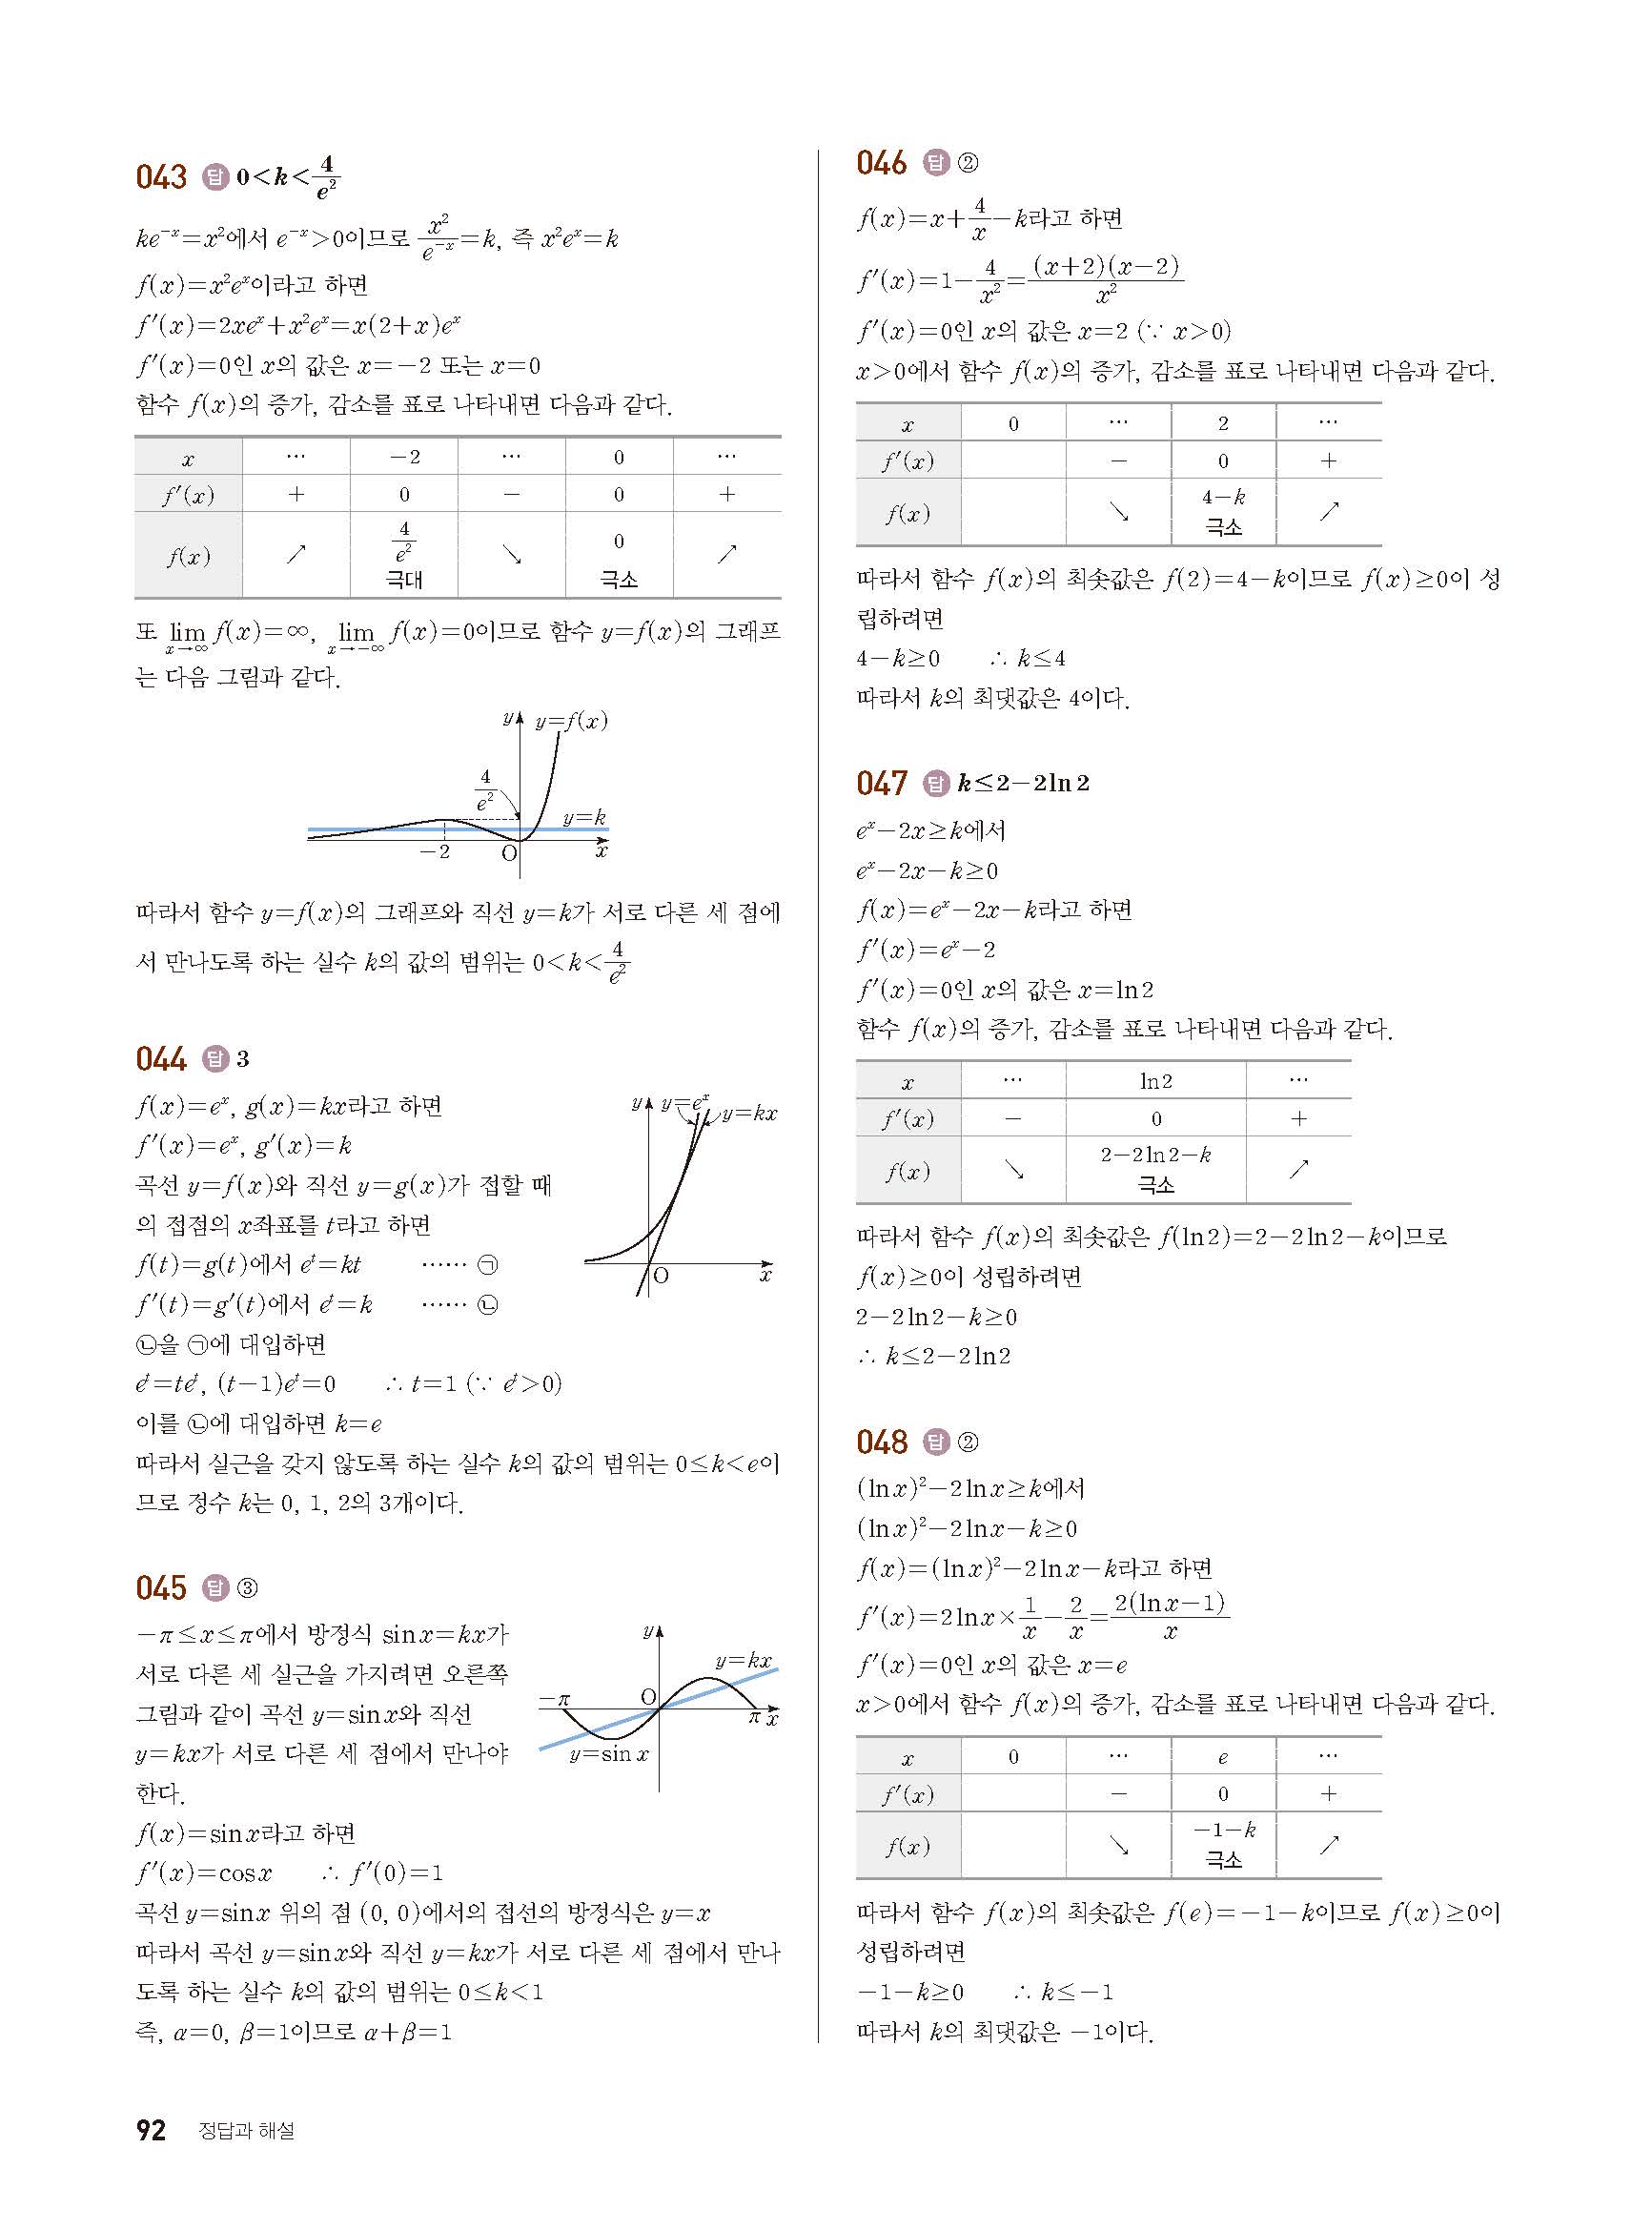 043 답 0<k<4/e²
ke⁻ˣ=x²에서 e⁻ˣ>0이므로 x²/e⁻ˣ=k, 즉 x²eˣ=k
f(x)=x²eˣ이라고 하면
f′(x)=2xeˣ+x²eˣ=x(2+x)eˣ
f′(x)=0인 x의 값은 x=−2 또는 x=0
함수 f(x)의 증가, 감소를 표로 나타내면 다음과 같다.
x ⋯ −2 ⋯ 0 ⋯
f′(x) + 0 − 0 +
f(x) ↗ 4/e² 극대 ↘ 0 극소 ↗
또 lim x→∞ f(x)=∞, lim x→−∞ f(x)=0이므로 함수 y=f(x)의 그래프
는 다음 그림과 같다.
y y=f(x)
4/e²
y=k
−2 O x
따라서 함수 y=f(x)의 그래프와 직선 y=k가 서로 다른 세 점에
서 만나도록 하는 실수 k의 값의 범위는 0<k<4/e²
044 답 3
f(x)=eˣ, g(x)=kx라고 하면
f′(x)=eˣ, g′(x)=k
곡선 y=f(x)와 직선 y=g(x)가 접할 때
의 접점의 x좌표를 t라고 하면
f(t)=g(t)에서 eᵗ=kt ⋯⋯ ㉠
f′(t)=g′(t)에서 eᵗ=k ⋯⋯ ㉡
㉡을 ㉠에 대입하면
eᵗ=teᵗ, (t−1)eᵗ=0 ∴ t=1 (∵ eᵗ>0)
이를 ㉡에 대입하면 k=e
따라서 실근을 갖지 않도록 하는 실수 k의 값의 범위는 0≤k<e이
므로 정수 k는 0, 1, 2의 3개이다.
y y=eˣ y=kx
O x
045 답 ③
−π≤x≤π에서 방정식 sin x=kx가
서로 다른 세 실근을 가지려면 오른쪽
그림과 같이 곡선 y=sin x와 직선
y=kx가 서로 다른 세 점에서 만나야
한다.
y
y=kx
−π O π x
y=sin x
f(x)=sin x라고 하면
f′(x)=cos x ∴ f′(0)=1
곡선 y=sin x 위의 점 (0, 0)에서의 접선의 방정식은 y=x
따라서 곡선 y=sin x와 직선 y=kx가 서로 다른 세 점에서 만나
도록 하는 실수 k의 값의 범위는 0≤k<1
즉, α=0, β=1이므로 α+β=1
046 답 ②
f(x)=x+4/x−k라고 하면
f′(x)=1−4/x²=(x+2)(x−2)/x²
f′(x)=0인 x의 값은 x=2 (∵ x>0)
x>0에서 함수 f(x)의 증가, 감소를 표로 나타내면 다음과 같다.
x 0 ⋯ 2 ⋯
f′(x) − 0 +
f(x) ↘ 4−k 극소 ↗
따라서 함수 f(x)의 최솟값은 f(2)=4−k이므로 f(x)≥0이 성
립하려면
4−k≥0 ∴ k≤4
따라서 k의 최댓값은 4이다.
047 답 k≤2−2 ln 2
eˣ−2x≥k에서
eˣ−2x−k≥0
f(x)=eˣ−2x−k라고 하면
f′(x)=eˣ−2
f′(x)=0인 x의 값은 x=ln 2
함수 f(x)의 증가, 감소를 표로 나타내면 다음과 같다.
x ⋯ ln 2 ⋯
f′(x) − 0 +
f(x) ↘ 2−2 ln 2−k 극소 ↗
따라서 함수 f(x)의 최솟값은 f(ln 2)=2−2 ln 2−k이므로
f(x)≥0이 성립하려면
2−2 ln 2−k≥0
∴ k≤2−2 ln 2
048 답 ②
(ln x)²−2 ln x≥k에서
(ln x)²−2 ln x−k≥0
f(x)=(ln x)²−2 ln x−k라고 하면
f′(x)=2 ln x×1/x−2/x=2(ln x−1)/x
f′(x)=0인 x의 값은 x=e
x>0에서 함수 f(x)의 증가, 감소를 표로 나타내면 다음과 같다.
x 0 ⋯ e ⋯
f′(x) − 0 +
f(x) ↘ −1−k 극소 ↗
따라서 함수 f(x)의 최솟값은 f(e)=−1−k이므로 f(x)≥0이
성립하려면
−1−k≥0 ∴ k≤−1
따라서 k의 최댓값은 −1이다.
92 정답과 해설